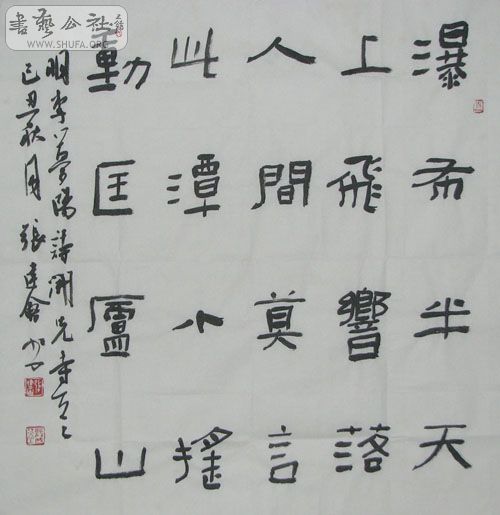 書藝公社
WWW.SHUFA.ORG
瀑布半天
上飛響落
人間莫言
此潭小搖
動匡廬山
明李夢陽詩開先寺
己丑秋月 張建會